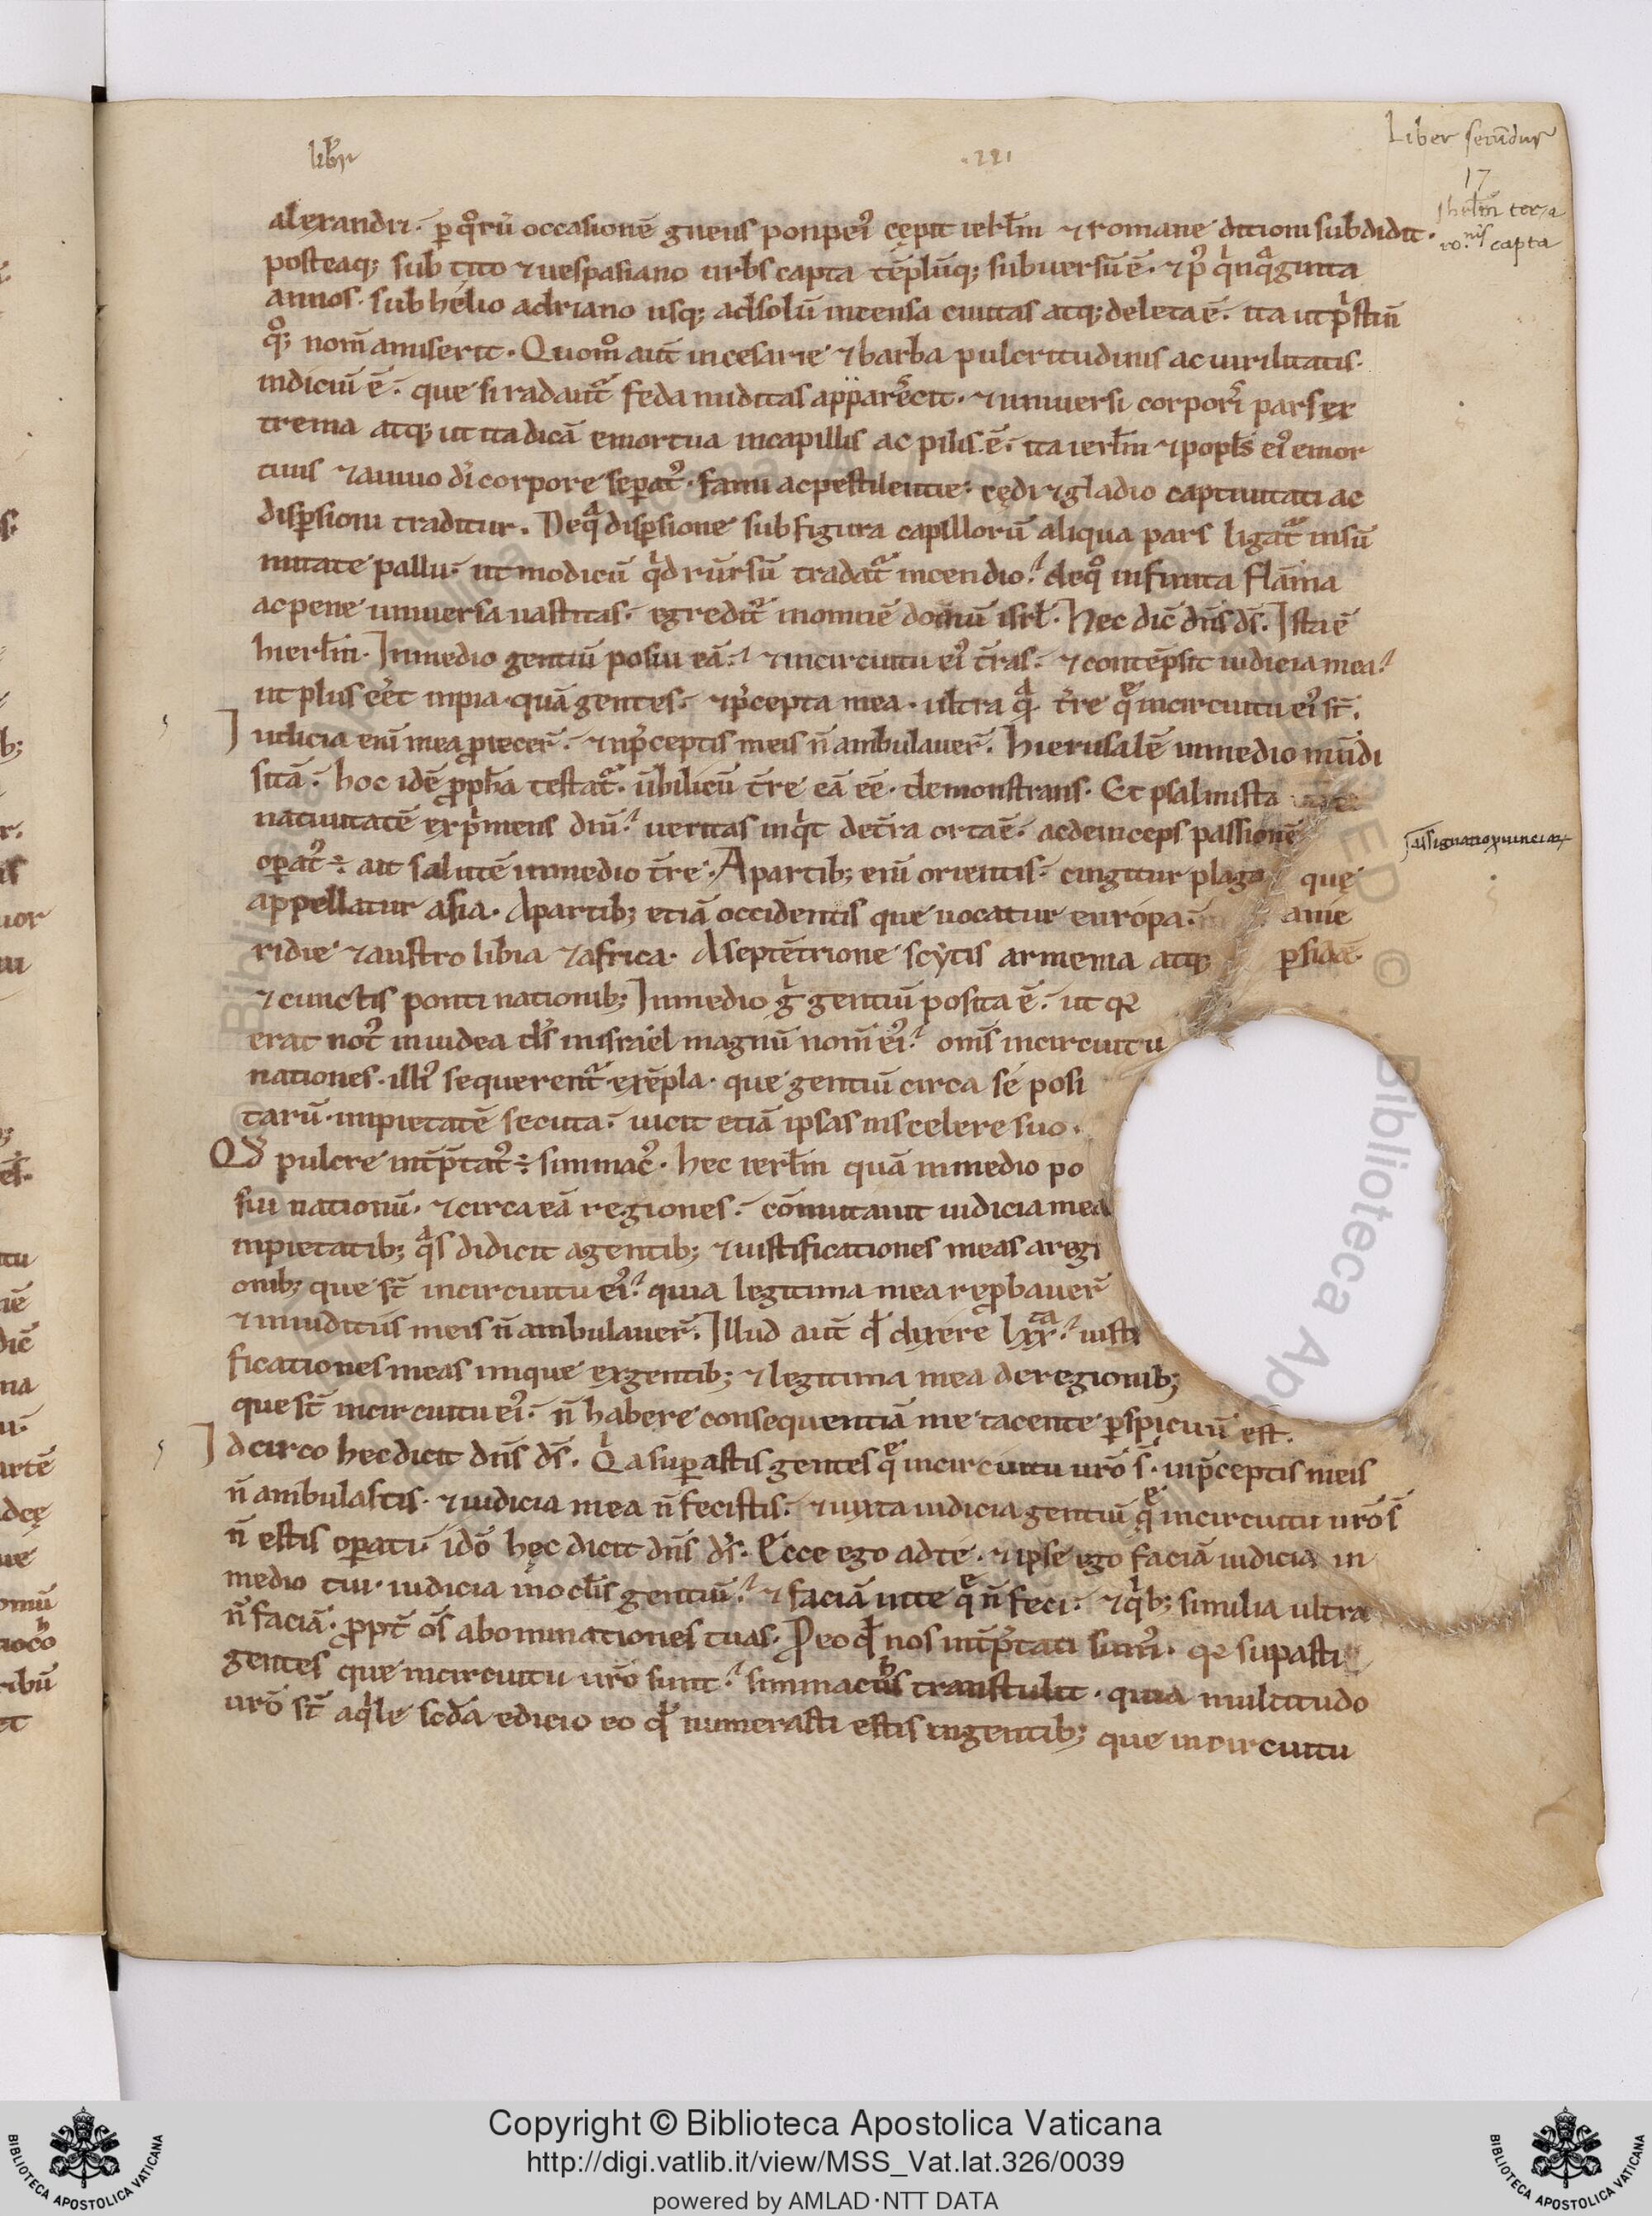 Liber secu̅dus
lib̅r
.221
17
alexandri. p̲ qͦru̅ occasione̅ gneus ponpei᾽ cępit ierl̅m ⁊ romane ditioni subdidit.
ro.nis capta
posteaq; sub tito ⁊ uespasiano urbs capta te̅plu̅q; subuersu̅ e̅. ⁊ p᾽ qͥnqͣginta
annos. sub hélio adriano usq; ad solu̅ incensa ciuitas atq; deleta e̅. ita ut pͥstin̅
qͦ; nom̅ amiserit. Quom̊ aut̅ in cesarie ⁊ barba pulcritudinis ac uirilitatis.
indiciu̅ e̅. que si radant᷑ feda nuditas apparecit. ⁊ uniuersi corpori᾽ pars ex
trema atq; ut ita dica̅ emortua in capillis ac pilis. e̅. ita ierl̅m ⁊ popl̅s ei᾽ emor
tuus ⁊ a uiuo di̅ corpore sep̲at᾽. fami ac pestilentie. cędi ⁊ gladio captiuitati ac
disp̲sioni traditur. De qͣ disp̲sione sub figura capilloru̅ aliqua pars ligat᷑ in su̅
mitate pallii. ut modicu̅ qͥd rursu̅ tradat᷑ incendio. de qͦ infinita fla̅ma
ac pene uniuersa uastitas. egredit᷑ in omne̅ domu̅ isrl̅. Hec dic̅ dn̅s ds̅. Ista e̅
hierl̅m. In medio gentiu̅ posui ea̅. ⁊ in circuitu ei᾽ t̅ras. ⁊ conte̅psit iudicia mea
ut plus ee̅t inpia qua̅ gentes. ⁊ p̅cepta mea. ultra qͣ t̅re qͤ in circuitu ei᾽ st̅.
Iudicia eni̅ mea ꝓiecer̅. ⁊ in p̅ceptis meis n̅ ambulauer̅. Hierusale̅ in medio mu̅di
sita̅. hoc ide̅ ꝓph̅a testat᷑. u̅bilicu̅ t̅re ea̅ ee̅. demonstrans. Et psalmista
natiuitate̅ expͥmens dn̅i. ueritas inqͥt de t̅ra orta e̅. ac deinceps passione̅
op̲at᾽ ÷ ait salute̅ in medio t̅re. A partib; eni̅ orientis. cingitur plaga quę
appellatur asia. A partib; etia̅ occidentis que uocatur európa. a me
ridie ⁊ austro libia ⁊ africa. A septe̅trione scẏtis armenia atq; p̲sida
⁊ cunctis ponti nationib; In medio gͥ gentiu̅ posita e̅. ut qꝛ
erat not᾽ in iudea ds̅ in israel magnu̅ nom̅ ei᾽. om̅s in circuitu
nationes. illi᾽ sequerent᷑ exe̅pla. que gentiu̅ circa se posi
taru̅. impietate̅ secuta. uicit etia̅ ipsas in scelere suo.
Qd̅ pulcre int̅p̅tat᾽ ÷ simmac᾽. hec ierl̅m qua̅ in medio po
sui nationu̅. ⁊ circa ea̅ regiones. co̅mutauit iudicia mea
inpietatib; qͣs didicit a gentib; ⁊ iustificationes meas a regi
onib; que st̅ in circuitu ei᾽. quia legitima mea reꝓbauer̅
⁊ in iuditiis meis n̅ ambulauer̅. Illud aut̅ qd̅ dixere lxxͭͣ. iusti
ficationes meas inique ex gentib; ⁊ legitima mea de regionib;
que st̅ in circuitu ei᾽. n̅ habere consequentia̅ me tacente p̲spicuu̅ est.
Idcirco hec dicit dn̅s ds̅. Qͥa sup̲astis gentes qͤ in circuitu uro̅ s̅. in p̅ceptis meis
n̅ ambulastis. ⁊ iudicia mea n̅ fecistis. ⁊ iuxta iudicia gentiu̅ qͤ in circuitu uro̅ s̅
n̅ estis op̲ati. ido̅ hęc dicit dn̅s ds̅. Ecce ego ad te. ⁊ ipse ego facia̅ iudicia in
medio tui. iudicia in ocl̅is gentiu̅. ⁊ facia̅ in te qͤ n̅ feci. ⁊ qͥb; similia ultra
n̅ facia̅. ꝓpt̅ om̅s abominationes tuas. P eo qd̅ nos int̅p̅tati sum᾽. qꝛ supasti
gentes que in circuitu uro̅ sunt. simmachus transtulit. quia multitudo
uro̅ st̅ aqͥle scd̅a edicio eo qd̅ numerasti estis in gentib; que in circuitu